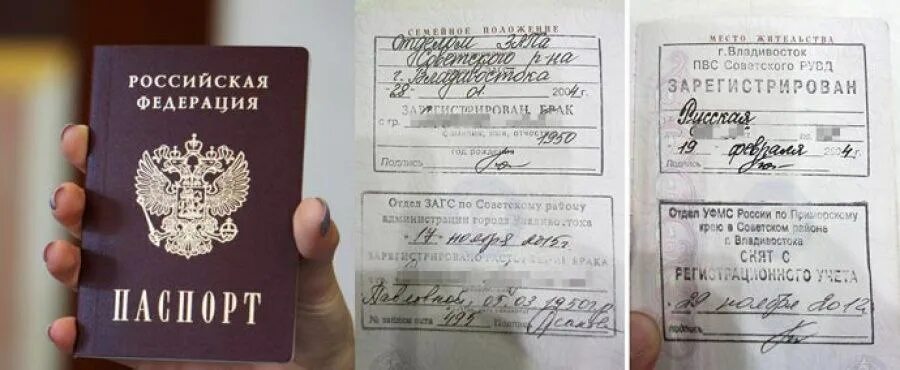 РОССИЙСКАЯ
ФЕДЕРАЦИЯ
ПАСПОРТ
СЕМЕЙНОЕ ПОЛОЖЕНИЕ
Отделом ЗАГСа
Советского р-на
г. Владивостока
28 01 2004 г.
ЗАРЕГИСТРИРОВАН БРАК
с гр.
фамилия, имя, отчество
1950
год рождения
Подпись
Отдел ЗАГС по Советскому району
администрации города Владивостока
17 ноября 2015г.
ЗАРЕГИСТРИРОВАНО РАСТОРЖЕНИЕ БРАКА
Павловной, 05.03.1950г
№ записи акта 495 Подпись
МЕСТО ЖИТЕЛЬСТВА
г.Владивосток
ПВС Советского РУВД
ЗАРЕГИСТРИРОВАН
Русская
19 февраля 2004г.
Подпись
Отдел УФМС России по Приморскому
краю в Советском районе
г. Владивостока
СНЯТ С
РЕГИСТРАЦИОННОГО УЧЕТА
29 ноября 2012
подпись